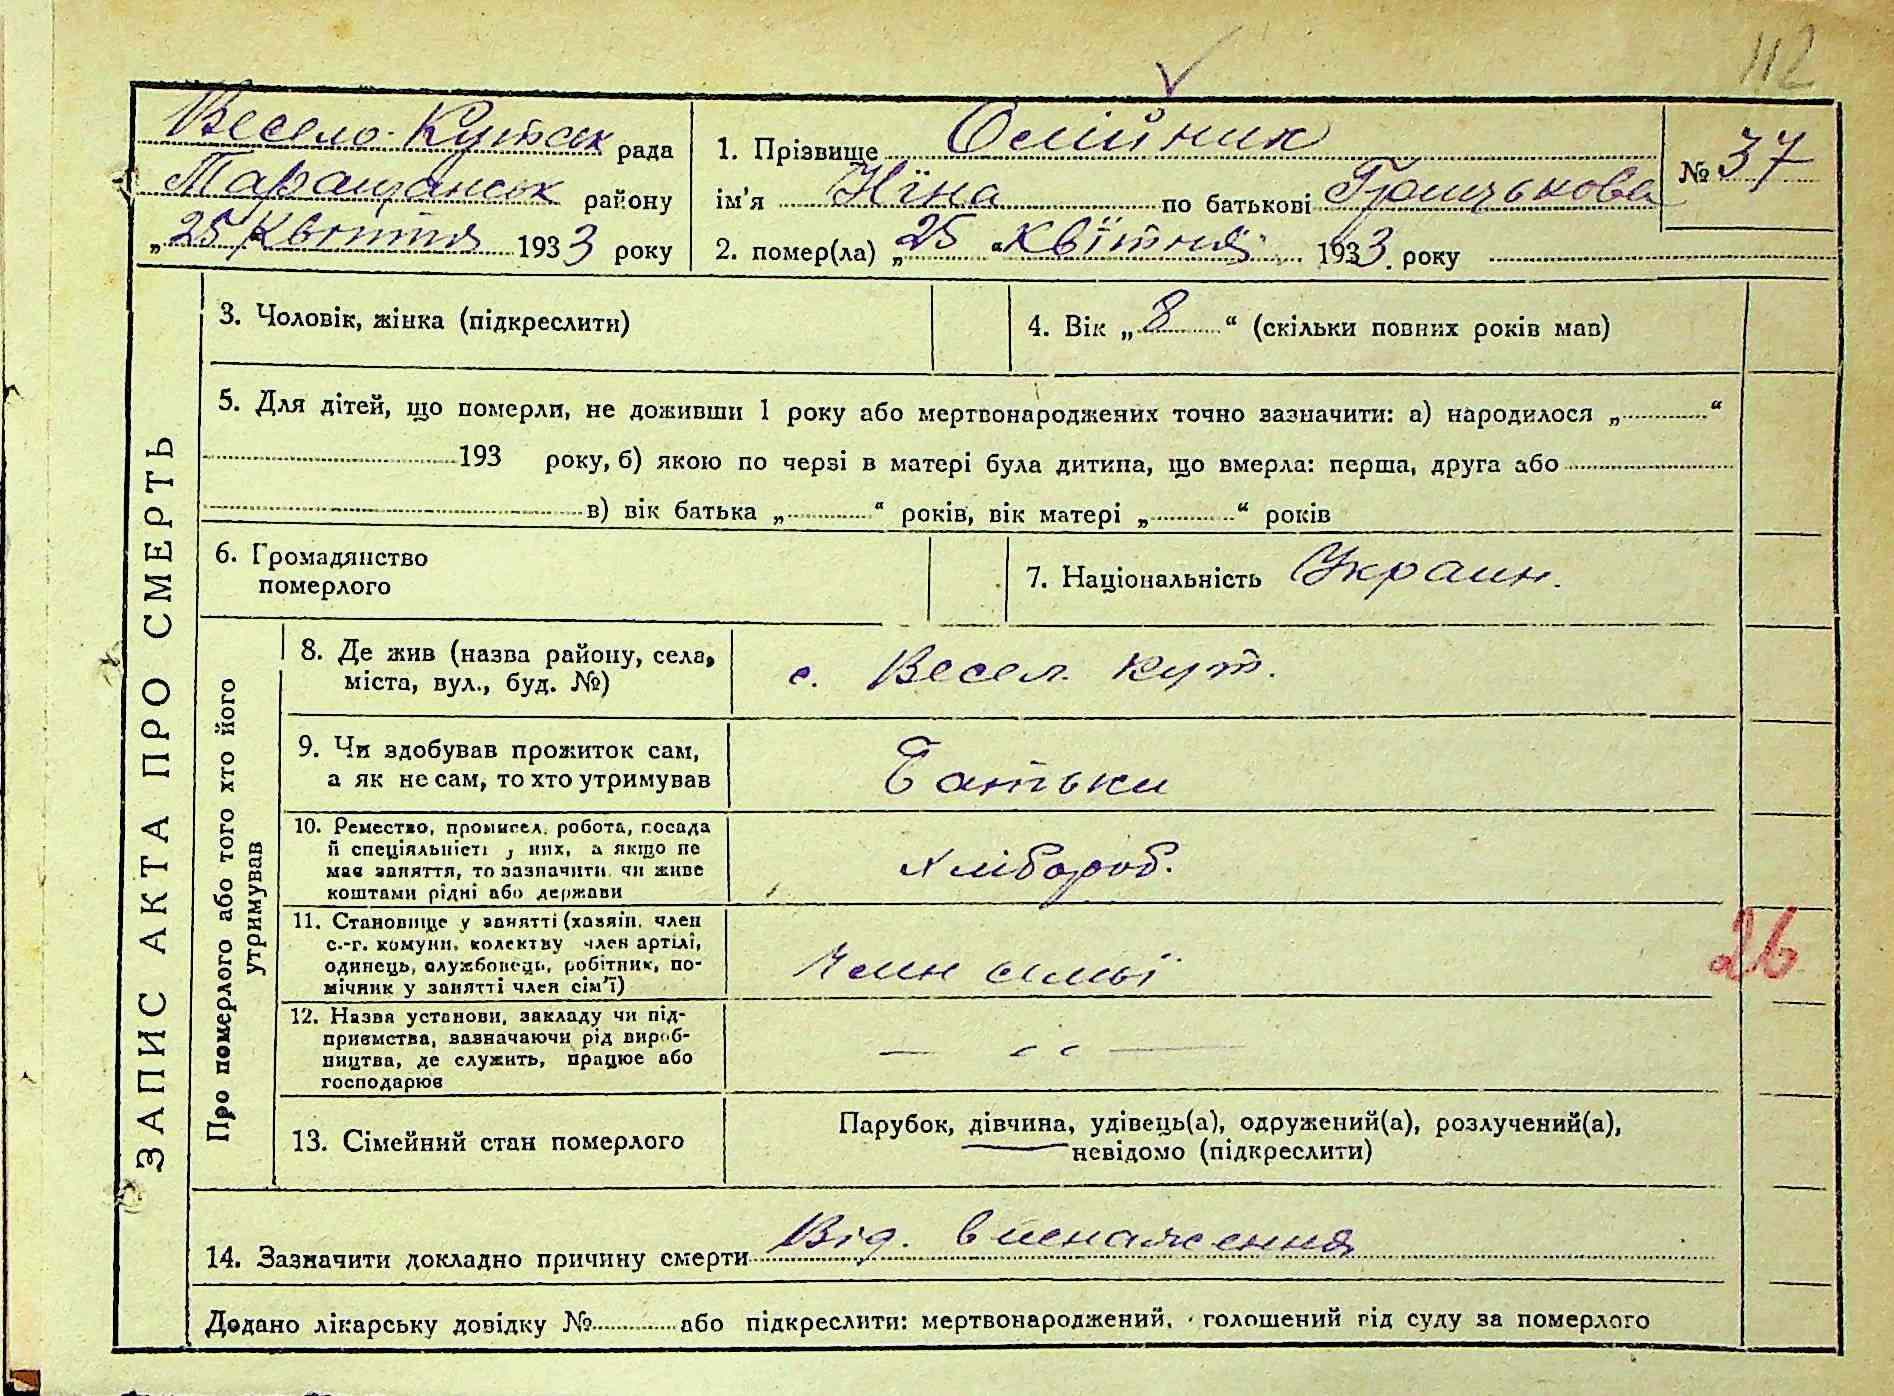 112
Весело-Кутськ рада
Таращанськ району
„25" Квітня 1933 року
1. Прізвище Олійник
ім'я Ніна по батькові Грицькова
№ 37
2. помер(ла) „25" Квітня 1933 року
ЗАПИС АКТА ПРО СМЕРТЬ
3. Чоловік, жінка (підкреслити)
4. Вік „8" (скільки повних років мав)
5. Для дітей, що померли, не доживши 1 року або мертвонароджених точно зазначити: а) народилося „ "
193 року, б) якою по черзі в матері була дитина, що вмерла: перша, друга або
в) вік батька „ " років, вік матері „ " років
6. Громадянство
померлого
7. Національність Украин.
Про померлого або того хто його
утримував
8. Де жив (назва району, села,
міста, вул., буд. №)
с. Весел. Кут.
9. Чи здобував прожиток сам,
а як не сам, то хто утримував
Батьки
10. Ремество, промисел, робота, посада
й спеціяльність у них, а якщо не
має заняття, то зазначити чи живе
коштами рідні або держави
Хлібороб.
11. Становище у занятті (хазяїн, член
с.-г. комуни, колективу член артілі,
одинець, службовець, робітник, по-
мічник у занятті член сім'ї)
Член сімьї
26
12. Назва установи, закладу чи під-
приємства, зазначаючи рід вироб-
ництва, де служить, працює або
господарює
— " —
13. Сімейний стан померлого
Парубок, дівчина, удівець(а), одружений(а), розлучений(а),
невідомо (підкреслити)
14. Зазначити докладно причину смерти Від. виснаження
Додано лікарську довідку № або підкреслити: мертвонароджений, голошений від суду за померлого